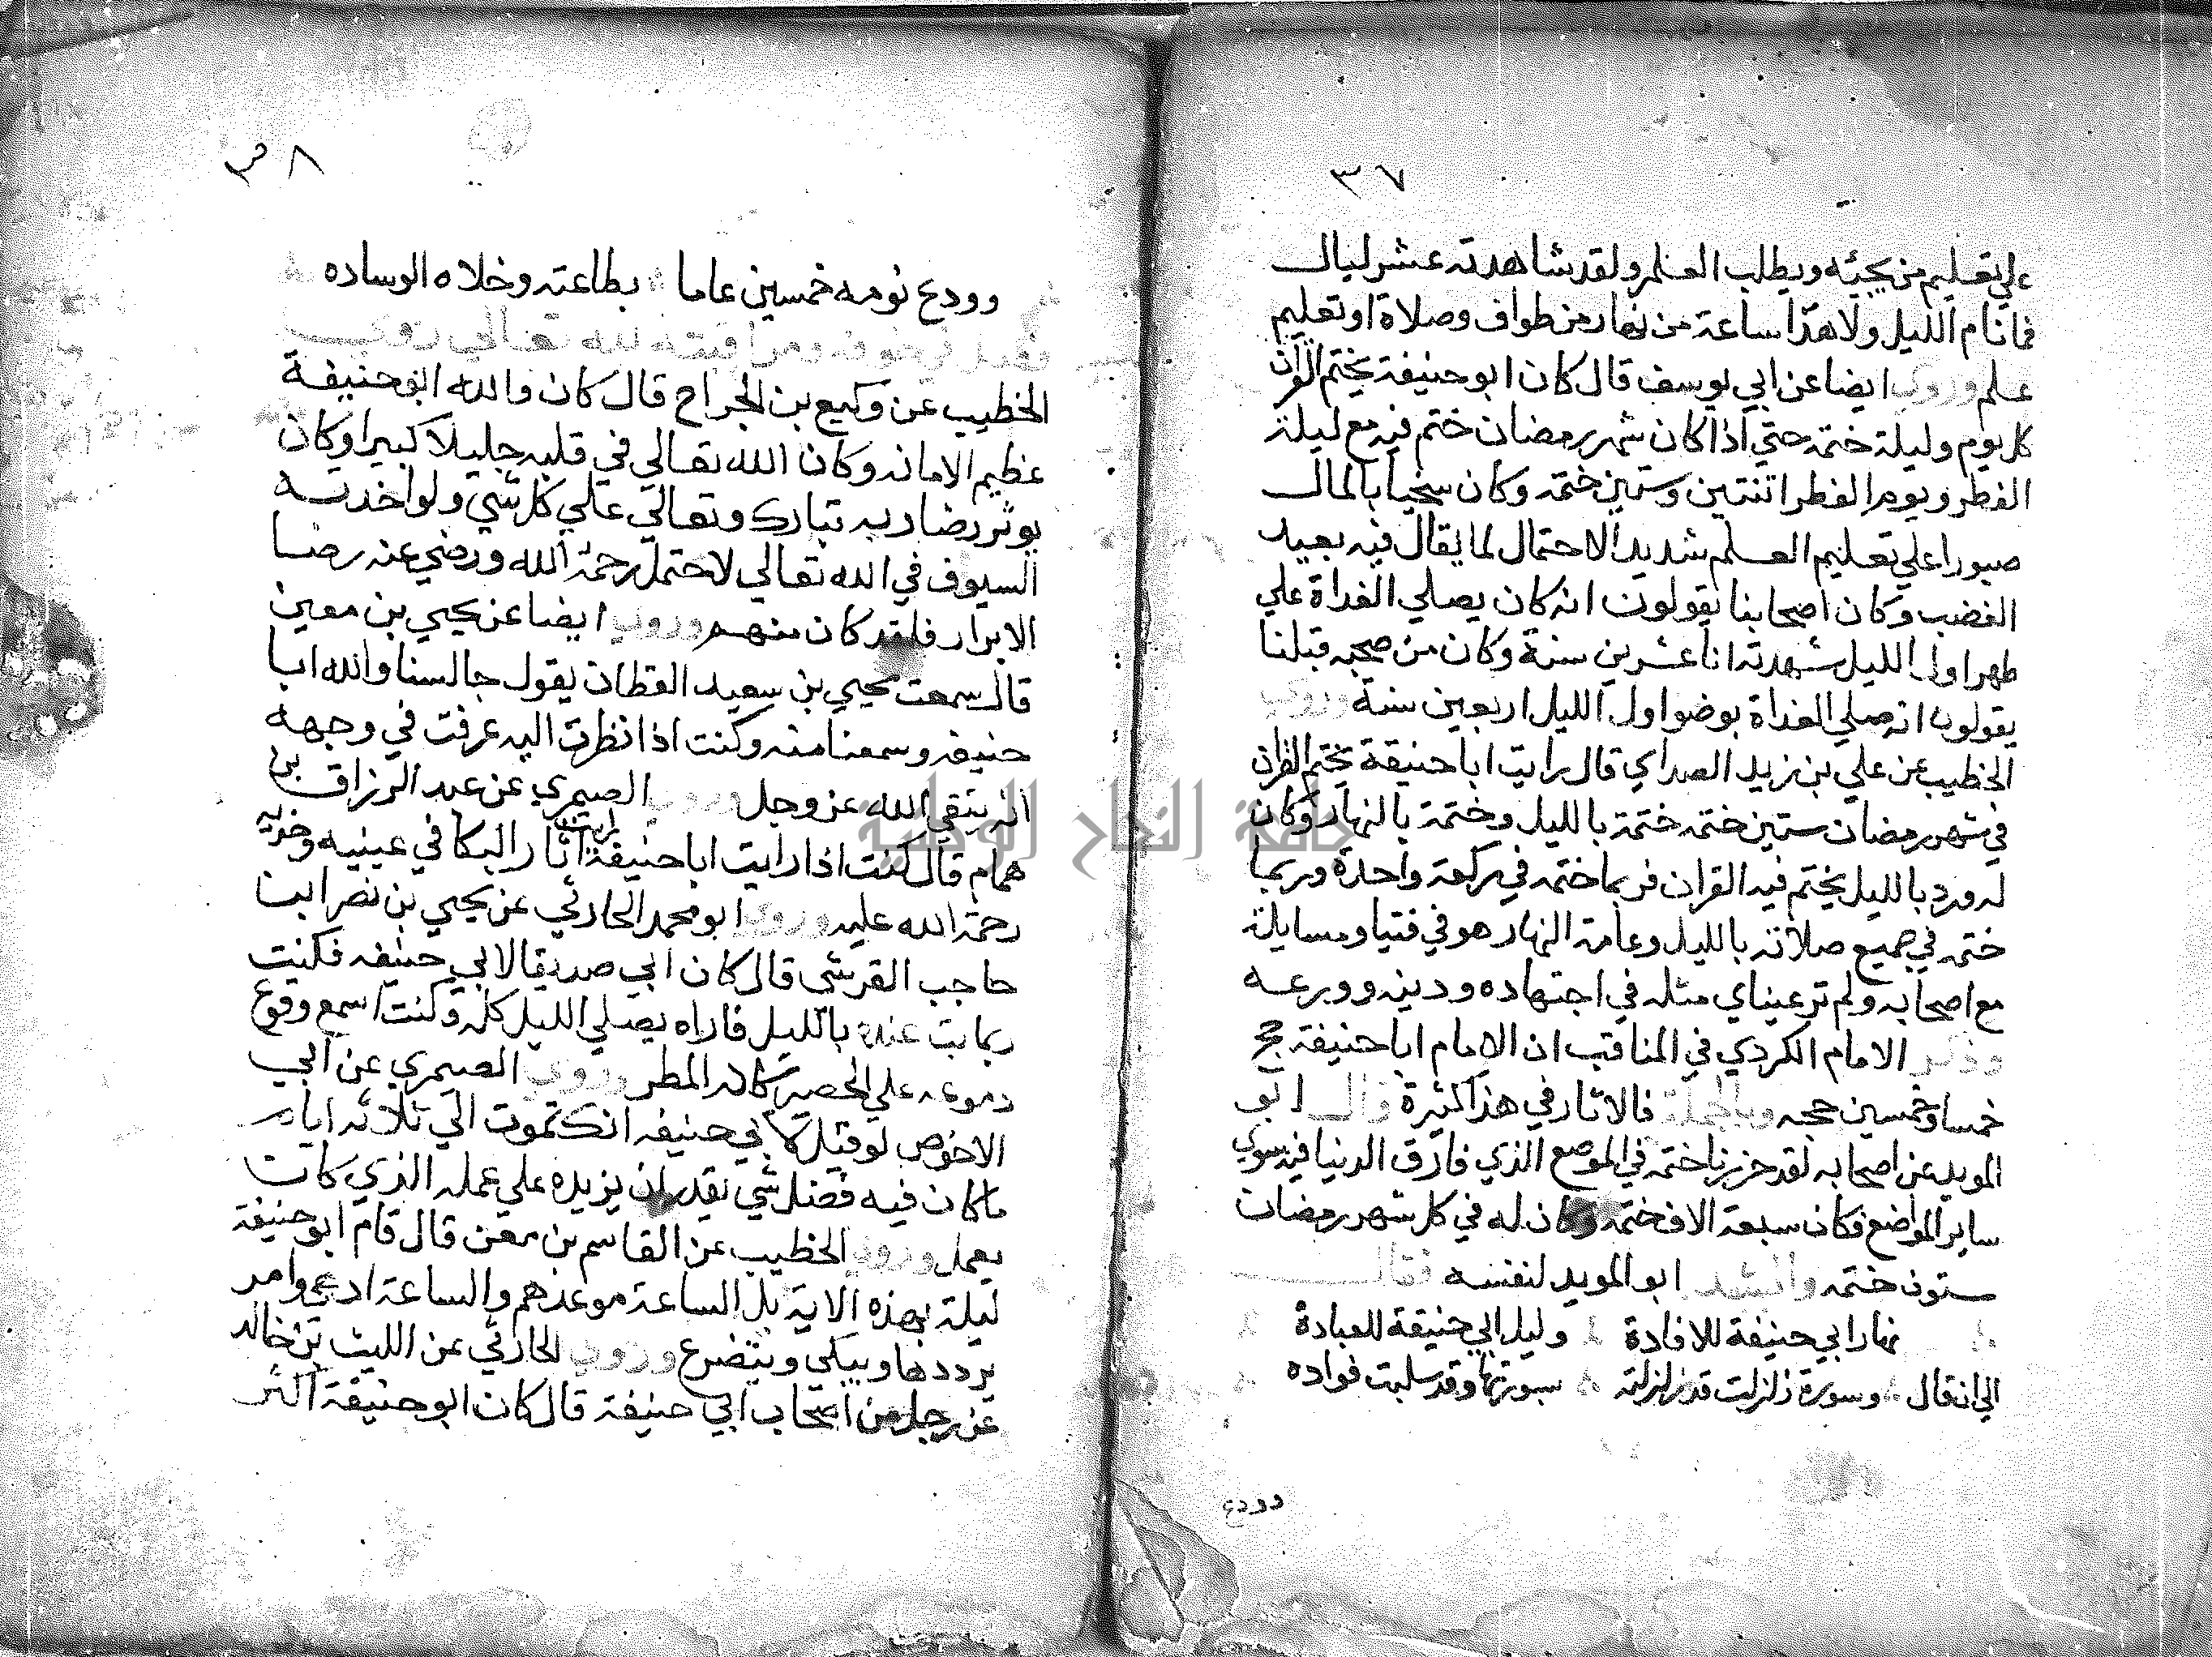 ٣٧
علي تعليم من يجيئه ويطلب العلم ولقد شاهدته عشر ليال
فما نام الليل ولا هدا ساعة من نهار من طواف وصلاة او تعليم
علم وروي ايضا عن ابي يوسف قال كان ابو حنيفة يختم القران
كل يوم وليلة ختمه حتي اذا كان شهر رمضان ختم فيه مع ليلة
الفطر ويوم الفطر اثنتين وستين ختمه وكان سخيا بالمال
صبورا علي تعليم العلم شديد الاحتمال لما يقال فيه بعيد
الغضب وكان اصحابنا يقولون انه كان يصلي الغداة علي
طهر اول الليل شهدته انا عشرين سنة وكان من صحبه قبلنا
يقولون انه صلي الغداة بوضو اول الليل اربعين سنة وروي
الخطيب عن علي بن زيد الصداي قال رايت ابا حنيفة يختم القران
في شهر رمضان ستين ختمه ختمة بالليل وختمة بالنهار وكان
له ورد بالليل يختم فيه القران فربما ختمه في ركعة واحدة وربما
ختمه في جميع صلاته بالليل وعامة النهار هو في فتيا ومسايلة
مع اصحابه ولم تر عيناي مثله في اجتهاده ودينه وورعه
وذكر الامام الكردي في المناقب ان الامام ابا حنيفة حج
خمسا وخمسين حجه وبالجملة فالاثار في هذا كثيرة قال ابو
المويد عن اصحابه لقد حزرنا ختمه في الموضع الذي فارق الدنيا فيه سوي
ساير المواضع فكان سبعة الاف ختمه وكان له في كل شهر رمضان
ستون ختمه وانشد ابو المويد لنفسه فقال
نهار ابي حنيفة للافادة وليل ابي حنيفة للعبادة
الي ان قال وسورة زلزلت قد زلزلته سورتها وقد سلبت فواده
وودع
٣٨
وودع نومه خمسين عاما بطاعته وخلاه الوساده
الخطيب عن وكيع بن الجراح قال كان والله ابو حنيفة
عظيم الامانه وكان الله تعالي في قلبه جليلا كبيرا وكان
يوثر رضا ربه تبارك وتعالي علي كل شي ولو اخدته
السيوف في الله تعالي لاحتمل رحمة الله ورضي عنه رضا
الابرار فلقد كان منهم وروي ايضا عن يحيي بن معين
قال سمعت يحيي بن سعيد القطان يقول جالسنا والله ابا
حنيفه وسمعنا منه وكنت اذا نظرت اليه عرفت في وجهه
انه يتقي الله عز وجل وروي الصيمري عن عبد الرزاق بن
همام قال كنت اذا رايت ابا حنيفة رايت اثار البكا في عينيه وخديه
رحمة الله عليه وروي ابو محمد الحارثي عن يحيي بن نصر ابن
حاجب القرشي قال كان ابي صديقا لابي حنيفه فكنت
ربما بت عنده بالليل فاراه يصلي الليل كله وكنت اسمع وقوع
دموعه علي الحصير كانه المطر وروي الصيمري عن ابي
الاخوص لو قيل لابي حنيفه انك تموت الي ثلاثه ايام
ما كان فيه فضل شي يقدر ان يزيده علي عمله الذي كان
يعمل وروي الخطيب عن القاسم بن معن قال قام ابو حنيفة
ليلة بهذه الاية بل الساعة موعدهم والساعة ادهي وامر
يرددها ويبكي ويتضرع وروي الحارثي عن الليث بن خالد
عن رجل من اصحاب ابي حنيفة قال كان ابو حنيفة اكثر
جامعة النجاح الوطنية